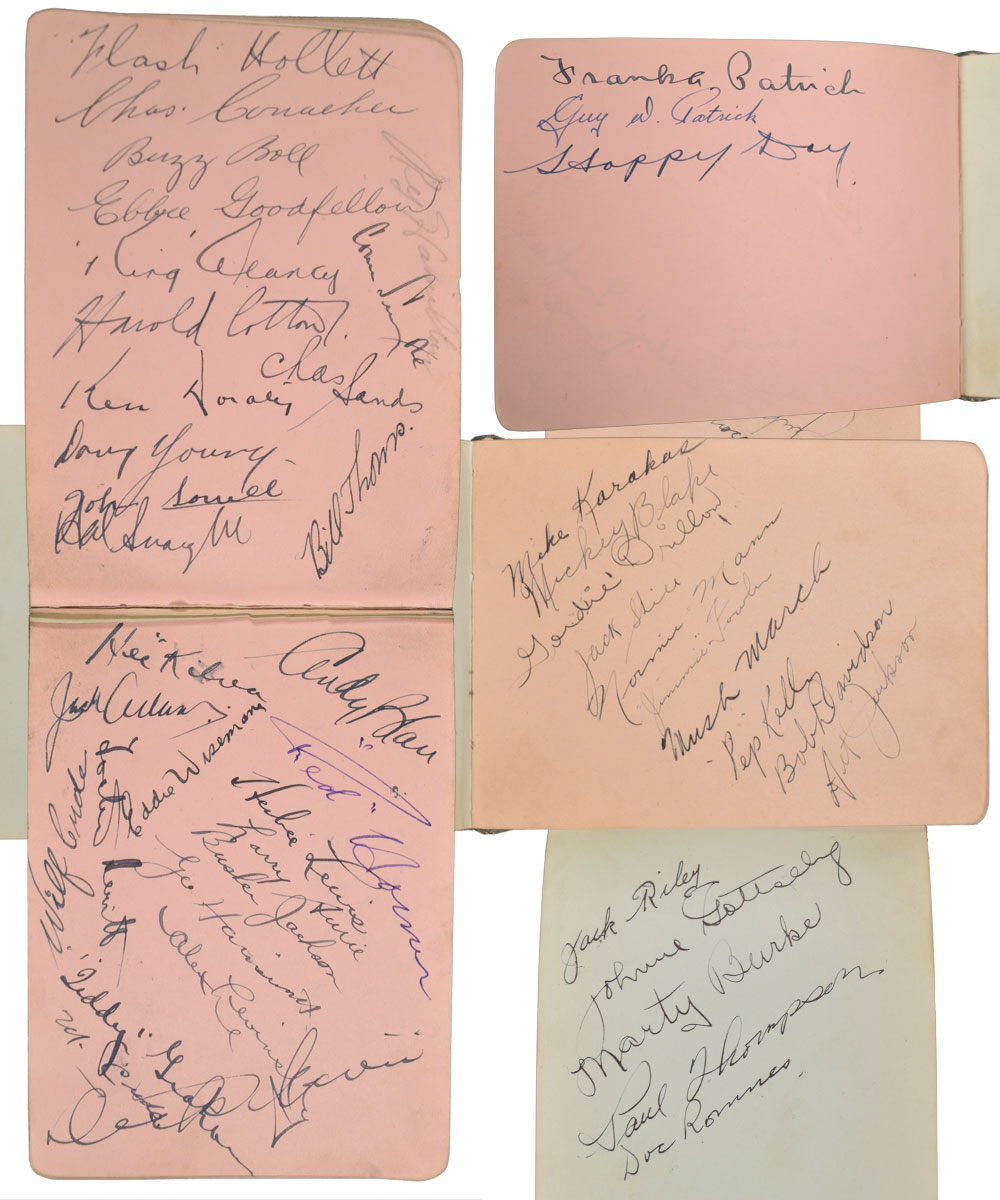 Flash Hollett
Chas. Conacher
Buzz Boll
Ebbie Goodfellow
"King" Clancy
Harold Cotton.
Chas Sands
Ken Doraty
Doug Young
John Sorrell
Hal
Bill Thoms.
Frank A. Patrick
Guy W. Patrick
Happy Day.
Mike Karakas
Mickey Blake
Gordie Drillon
Jack Shill
Norman Mann
Jimmie Fowler
Mush March
Pep Kelly
Bob Davidson
Art Jackson
Hec Kilrea
Andy Blair
Jack Adams.
Eddie Wiseman
"Red" Horner
Herbie Lewis
Larry Aurie
Busher Jackson
Geo Hainsworth
Alex Levinsky
Wilf Cude
"Teddy" Graham
Jack Riley
Johnnie Gottselig
Marty Burke
Paul Thompson
Doc Romnes.